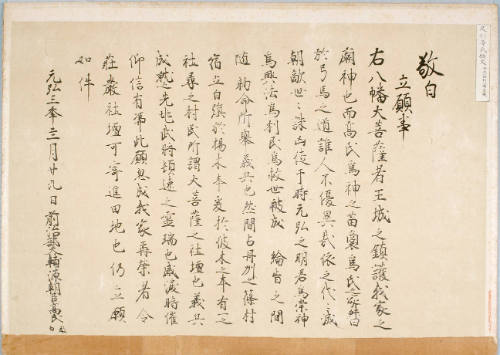 敬白
立願事
右八幡大菩薩者王城之鎮護我家之
廟神也而高氏為神之苗裔為氏之家督
於弓馬之道誰人不優異哉依之代々滅
朝敵世々誅凶徒于時元弘之明君為崇神
為興法為利民為救世被成綸旨之間
随勅命所挙義兵也然間占丹州之篠村
宿立白旗於楊木本爰於彼木之本有一之
社尋之村民所謂大菩薩之社壇也義兵
成就之先兆武将頓速之霊瑞也感涙暗催
仰信有憑此願忽成我家再栄者令
荘厳社壇可寄進田地也仍立願
如件
元弘三年 月廿九日前治部大輔源朝臣高氏